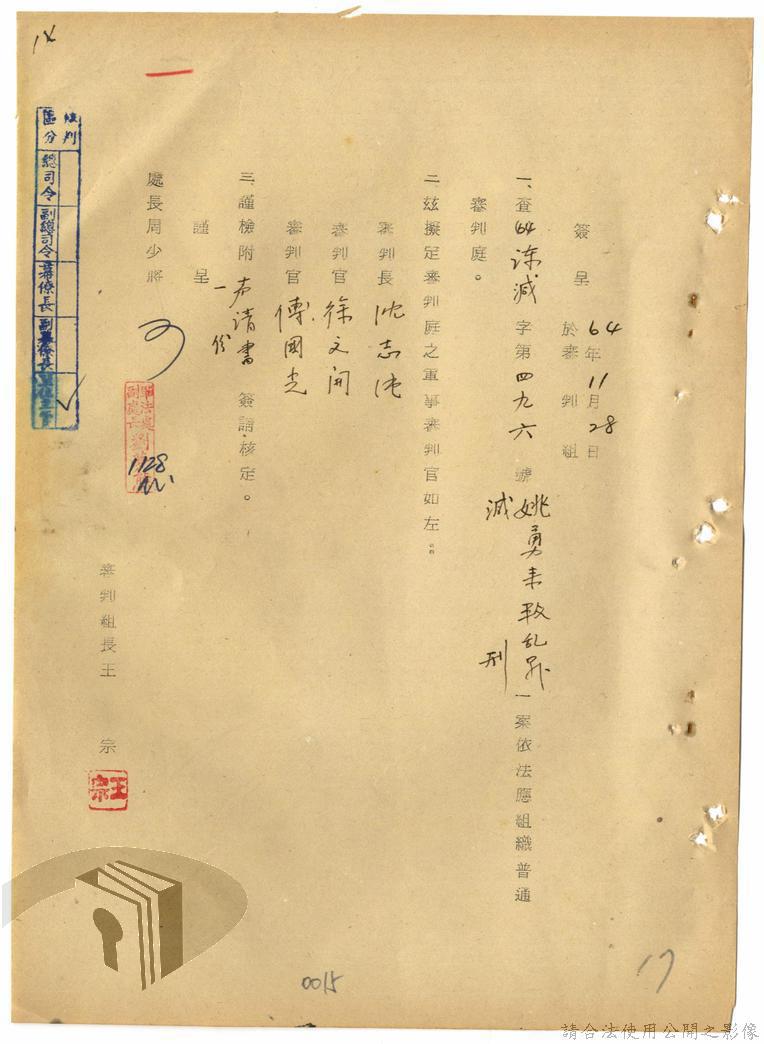 簽呈 64年11月28日
於審判組
一、查64諫減字第四九六號姚勇來叛乱罪減刑一案依法應組織普通
審判庭。
二、玆擬定審判庭之軍事審判官如左：
審判長 沈志純
審判官 徐文開
審判官 傅國光
三、謹檢附声請書一份 簽請核定。
謹呈
處長周少將
可
1128
審判組長王 宗
王宗
裁判區分
總司令
副總司令
幕僚長
副幕僚長
14
0015
17
請合法使用公開之影像